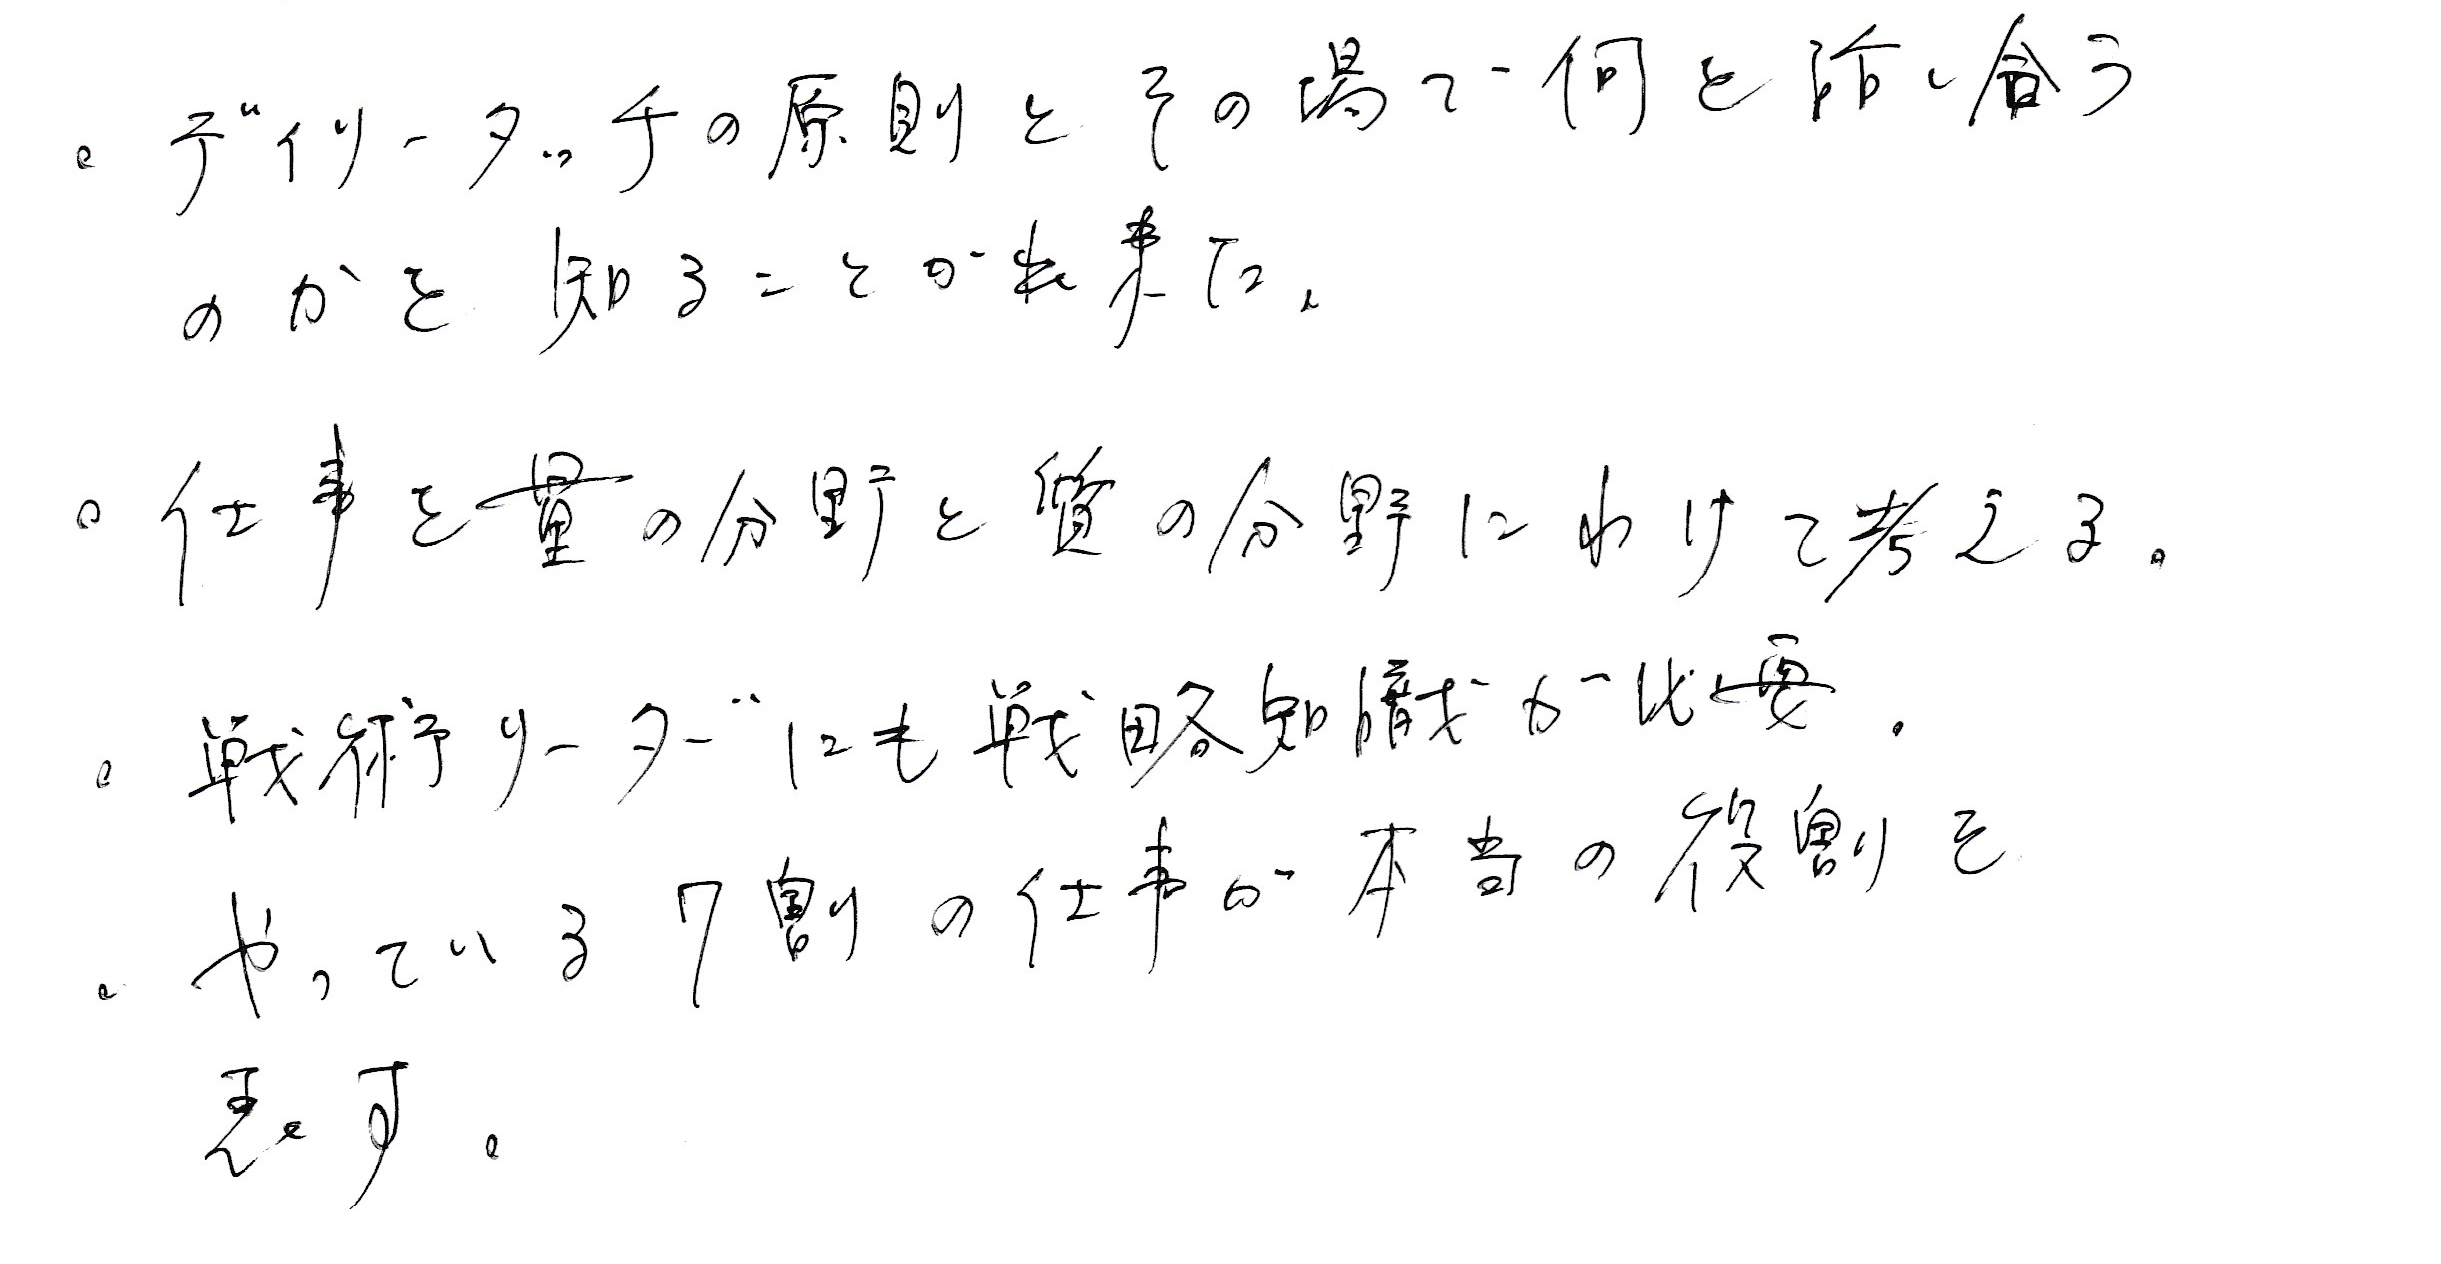 ・デイリータッチの原則とその場で何を話し合う
のかを知ることが出来た。
・仕事を量の分野と質の分野にわけて考える。
・戦術リーダーにも戦略知識が必要。
・やっている7割の仕事が本当の役割を
表す。